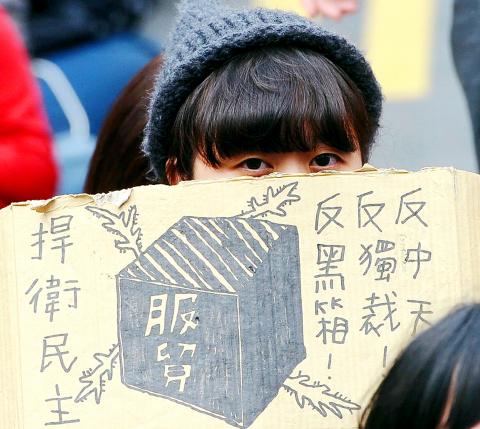 反中天
反獨裁！
反黑箱！
服貿
捍衛民主